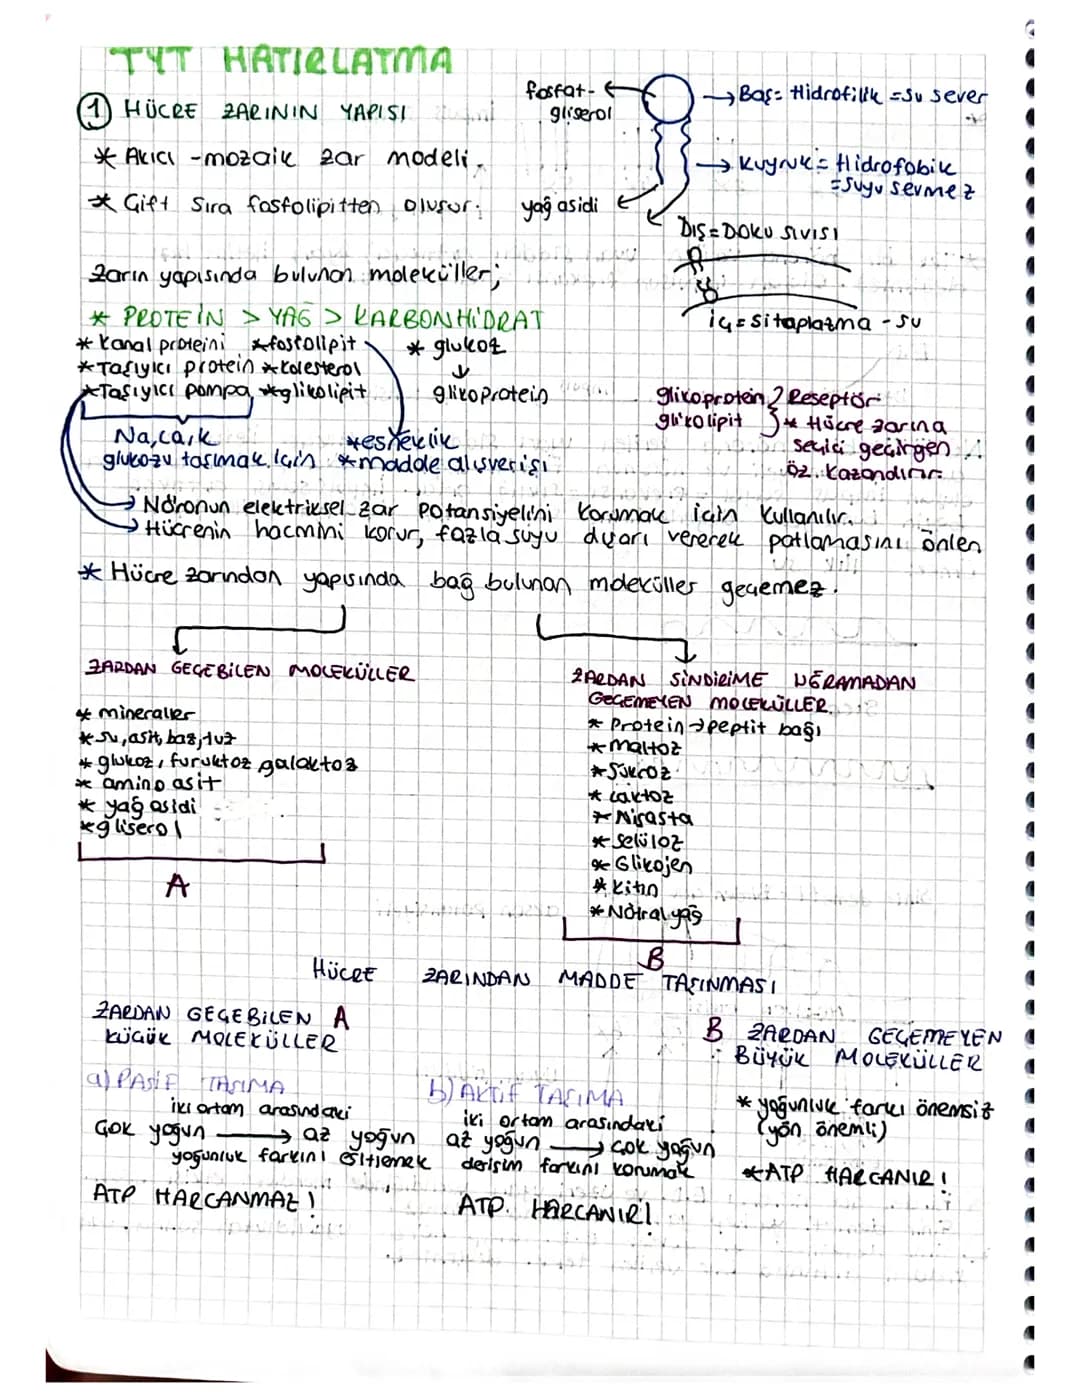 TYT HATIRLATMA
① HÜCRE ZARININ YAPISI
* Akıcı -mozaik zar modeli.
* Çift Sıra fosfolipitten oluşur.
fosfat-
gliserol
→ Baş = Hidrofilik =su sever
→ Kuyruk = Hidrofobik
=suyu sevmez
yağ asidi
DIŞ=DOKU SIVISI
iç = Sitoplazma - su
Zarın yapısında bulunan moleküller;
* PROTEİN > YAĞ > KARBONHİDRAT
* Kanal proteini *fosfolipit * glukoz
* Taşıyıcı protein *kolesterol
* Taşıyıcı pompa *glikolipit glikoprotein
Na, Ca, K
glukozu taşımak için
*esneklik
*madde alışverişi
glikoprotein } Reseptör
glikolipit * Hücre zarına
seçici geçirgen
öz. kazandırır.
→ Nöronun elektriksel zar potansiyelini korumak için kullanılır.
→ Hücrenin hacmini korur, fazla suyu dışarı vererek patlamasını önlen
* Hücre zarından yapısında bağ bulunan moleküller geçemez.
ZARDAN GEÇEBİLEN MOLEKÜLLER
* mineraller
* su, asit, baz, tuz
* glukoz, furuktoz galaktoz
* amino asit
* yağ asidi
* gliserol
A
ZARDAN SİNDİRİME UĞRAMADAN
GEÇEMEYEN MOLEKÜLLER
* Protein → peptit bağı
* maltoz
* Sükroz
* Laktoz
* Nişasta
* Selüloz
* Glikojen
* Kitin
* Nötral yağ
B
HÜCRE ZARINDAN MADDE TAŞINMASI
ZARDAN GEÇEBİLEN A
KÜÇÜK MOLEKÜLLER
a) PASİF TAŞIMA
iki ortam arasındaki
Çok yoğun → az yoğun
yoğunluk farkını eşitlemek
ATP HARCANMAZ!
b) AKTİF TAŞIMA
iki ortam arasındaki
az yoğun → çok yoğun
derişim farkını korumak
ATP. HARCANIR!
B ZARDAN GEÇEMEYEN
BÜYÜK MOLEKÜLLER
* yoğunluk farkı önemsiz
(yön önemli)
* ATP HARCANIR!